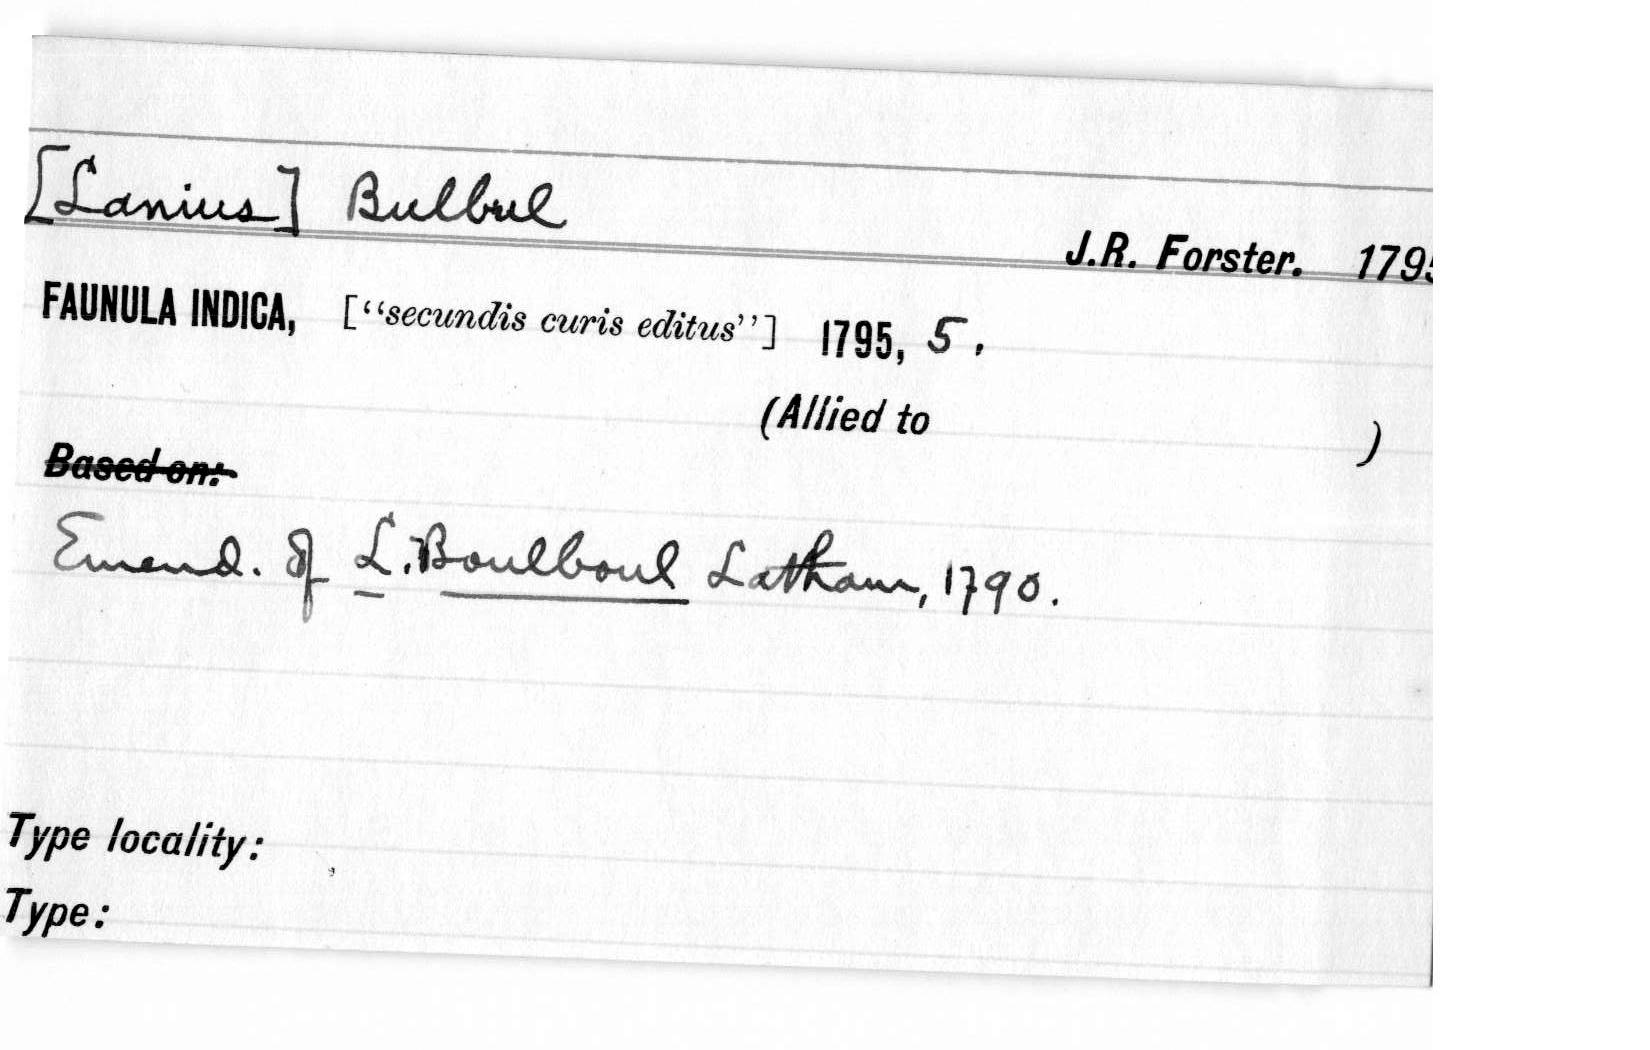 [Lanius] Bulbul
J.R. Forster. 1795
FAUNULA INDICA, [“secundis curis editus”] 1795, 5.
(Allied to )
Based on:
Emend. of L. Boulboul Latham, 1790.
Type locality:
Type: